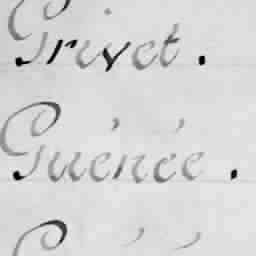 Grivet.
Guénée.